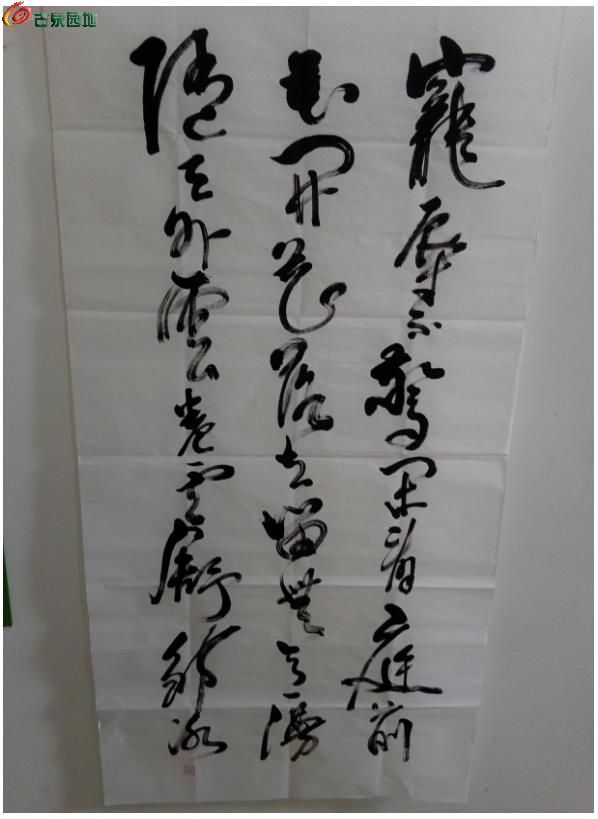 古泉园地
寵辱不驚闲看庭前
花開花落去留無意漫
隨天外雲卷雲舒